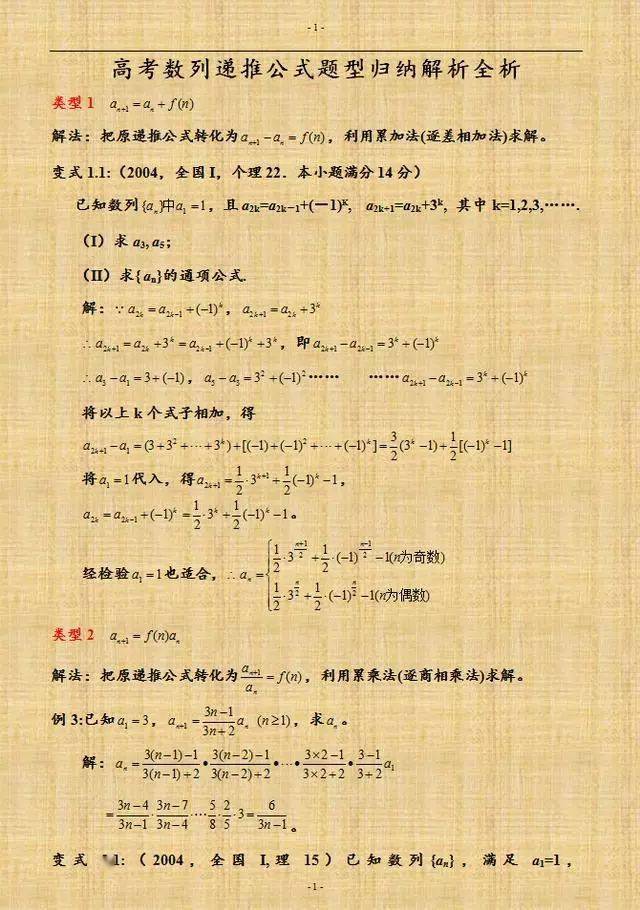 - 1 -
高考数列递推公式题型归纳解析全析
类型1 aₙ₊₁ = aₙ + f(n)
解法：把原递推公式转化为aₙ₊₁ − aₙ = f(n)，利用累加法(逐差相加法)求解。
变式1.1:（2004，全国I，个理22．本小题满分14分）
已知数列{aₙ}中a₁ = 1，且a2k=a2k−1+(−1)ᴷ, a2k+1=a2k+3ᵏ, 其中k=1,2,3,…….
（I）求a3, a5；
（II）求{ an}的通项公式.
解：∵ a_{2k} = a_{2k−1} + (−1)^k，a_{2k+1} = a_{2k} + 3^k
∴ a_{2k+1} = a_{2k} + 3^k = a_{2k−1} + (−1)^k + 3^k，即a_{2k+1} − a_{2k−1} = 3^k + (−1)^k
∴ a₃ − a₁ = 3 + (−1)，a₅ − a₃ = 3² + (−1)²…… ……a_{2k+1} − a_{2k−1} = 3^k + (−1)^k
将以上k个式子相加，得
a_{2k+1} − a₁ = (3 + 3² + ⋯ + 3^k) + [(−1) + (−1)² + ⋯ + (−1)^k] = 3/2(3^k − 1) + 1/2[(−1)^k − 1]
将a₁ = 1代入，得a_{2k+1} = 1/2·3^{k+1} + 1/2(−1)^k − 1，
a_{2k} = a_{2k−1} + (−1)^k = 1/2·3^k + 1/2(−1)^k − 1。
经检验a₁ = 1也适合，∴ aₙ = { 1/2·3^{(n+1)/2} + 1/2·(−1)^{(n−1)/2} − 1(n为奇数)
1/2·3^{n/2} + 1/2·(−1)^{n/2} − 1(n为偶数)
类型2 aₙ₊₁ = f(n)aₙ
解法：把原递推公式转化为aₙ₊₁/aₙ = f(n)，利用累乘法(逐商相乘法)求解。
例3:已知a₁ = 3，aₙ₊₁ = (3n−1)/(3n+2) aₙ (n ≥ 1)，求aₙ。
解：aₙ = (3(n−1)−1)/(3(n−1)+2)•(3(n−2)−1)/(3(n−2)+2)•⋯•(3×2−1)/(3×2+2)•(3−1)/(3+2) a₁
= (3n−4)/(3n−1)·(3n−7)/(3n−4)·⋯·5/8·2/5·3 = 6/(3n−1)。
变式 1:（2004，全国I,理15）已知数列{an}，满足a1=1，
- 1 -